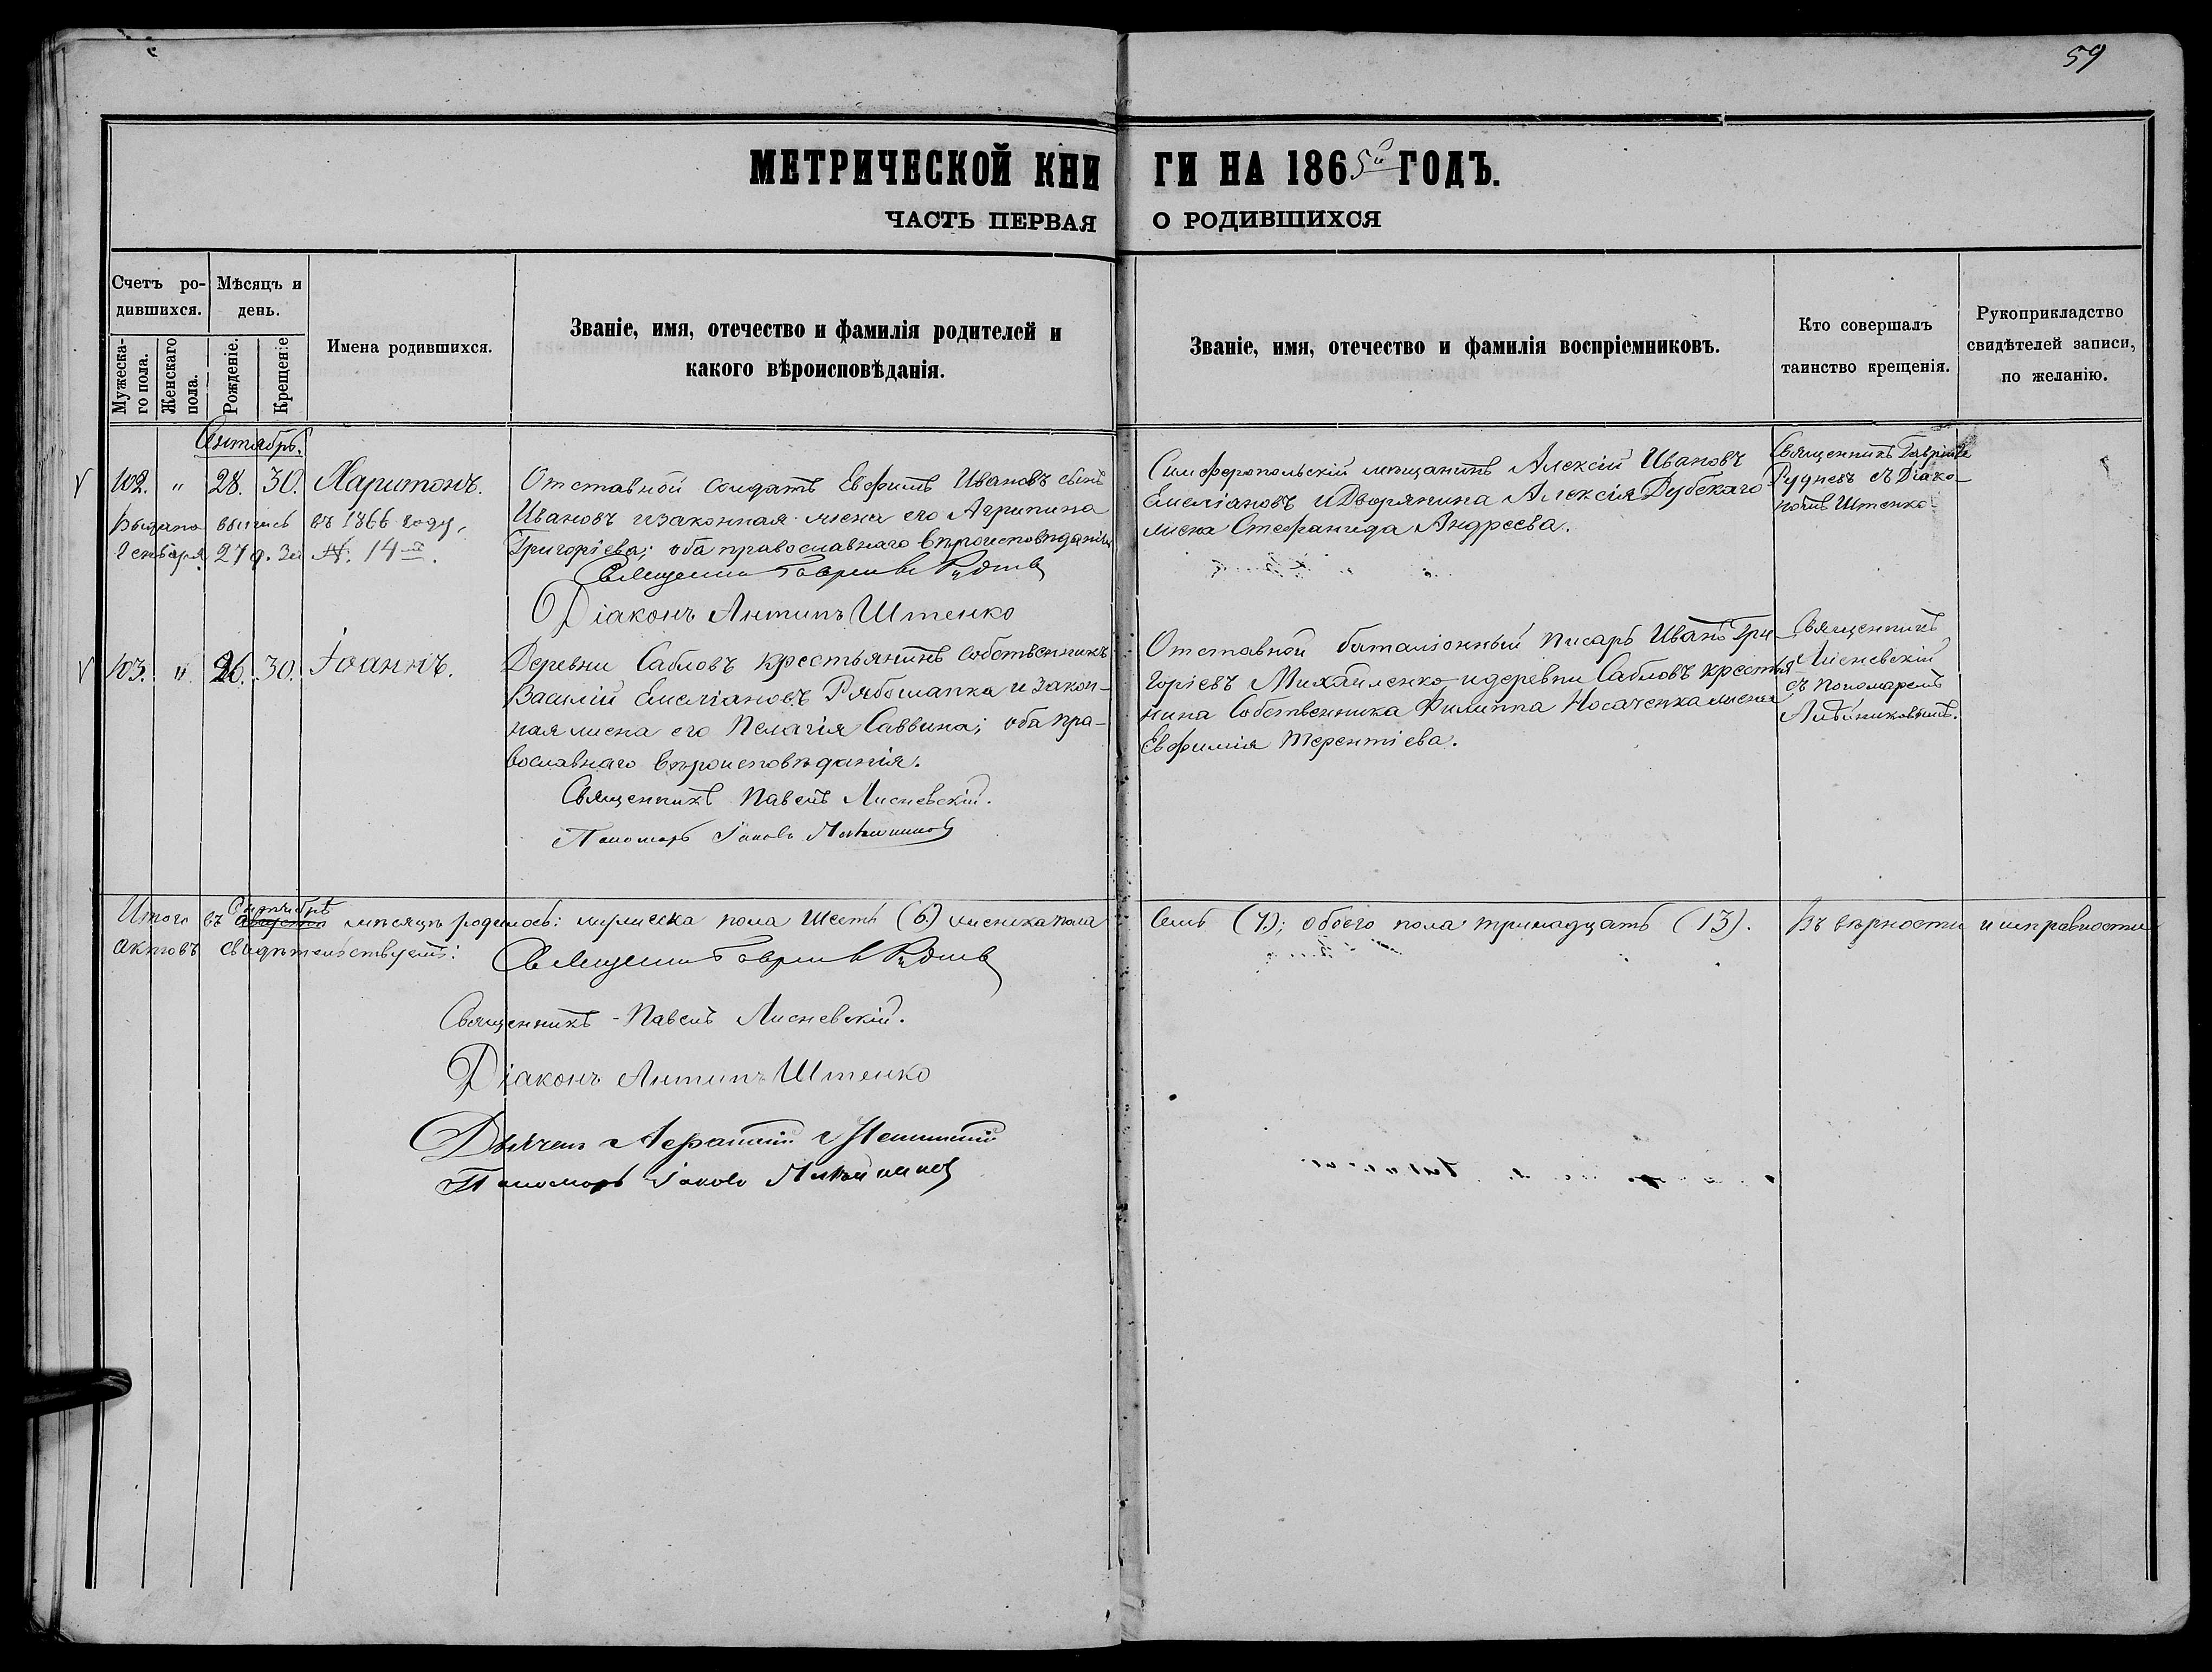 59
МЕТРИЧЕСКОЙ КНИГИ НА 1865й ГОДЪ.
ЧАСТЬ ПЕРВАЯ О РОДИВШИХСЯ
Счетъ ро-
дившихся.
Мужеска-
го пола.
Женскаго
пола.
Мѣсяцъ и
день.
Рожденіе.
Крещеніе
Имена родившихся.
Званіе, имя, отечество и фамилія родителей и
какого вѣроисповѣданія.
Званіе, имя, отечество и фамилія воспріемниковъ.
Кто совершалъ
таинство крещенія.
Рукоприкладство
свидѣтелей записи,
по желанію.
Сентябрь.
102. " 28. 30. Харитонъ.
Выдана выпись въ 1866 году,
Генваря 27 д. за №. 14м.
Отставной солдатъ Евфимъ Ивановъ сынъ
Ивановъ и законная жена его Агрипина
Григоріева; оба православнаго вѣроисповѣданія
Священникъ Гавріилъ Рудневъ
Діаконъ Антипъ Штенко
Симферопольскій мѣщанинъ Алексій Ивановъ
Емеліановъ и Дворянина Алексія Дубскаго
жена Стефанида Андреева.
Священникъ Гавріилъ
Рудневъ съ Діако-
номъ Штенко
103. " 26. 30. Іоаннъ.
Деревни Сабловъ крестьянинъ собственникъ
Василій Емеліановъ Рябошапка и закон-
ная жена его Пелагія Саввина; оба пра-
вославнаго вѣроисповѣданія.
Священникъ Павелъ Лисневскій.
Пономарь Іаковъ
Отставной баталіонный писарь Иванъ Гри-
горіевъ Михайленко и деревни Сабловъ крестья
нина Собственника Филиппа Носаченка жена
Евфимія Терентіева.
Священникъ
Лисневскій
съ пономаремъ
Итого въ Августѣ Сентябрѣ мѣсяцѣ родилось: мужеска пола шесть (6) женска пола семь (7); обоего пола тринадцать (13). Въ вѣрности и исправности
актовъ свидѣтельствуемъ:
Священникъ Гавріилъ Рудневъ
Священникъ Павелъ Лисневскій.
Діаконъ Антипъ Штенко
Дьячекъ
Пономарь Іаковъ